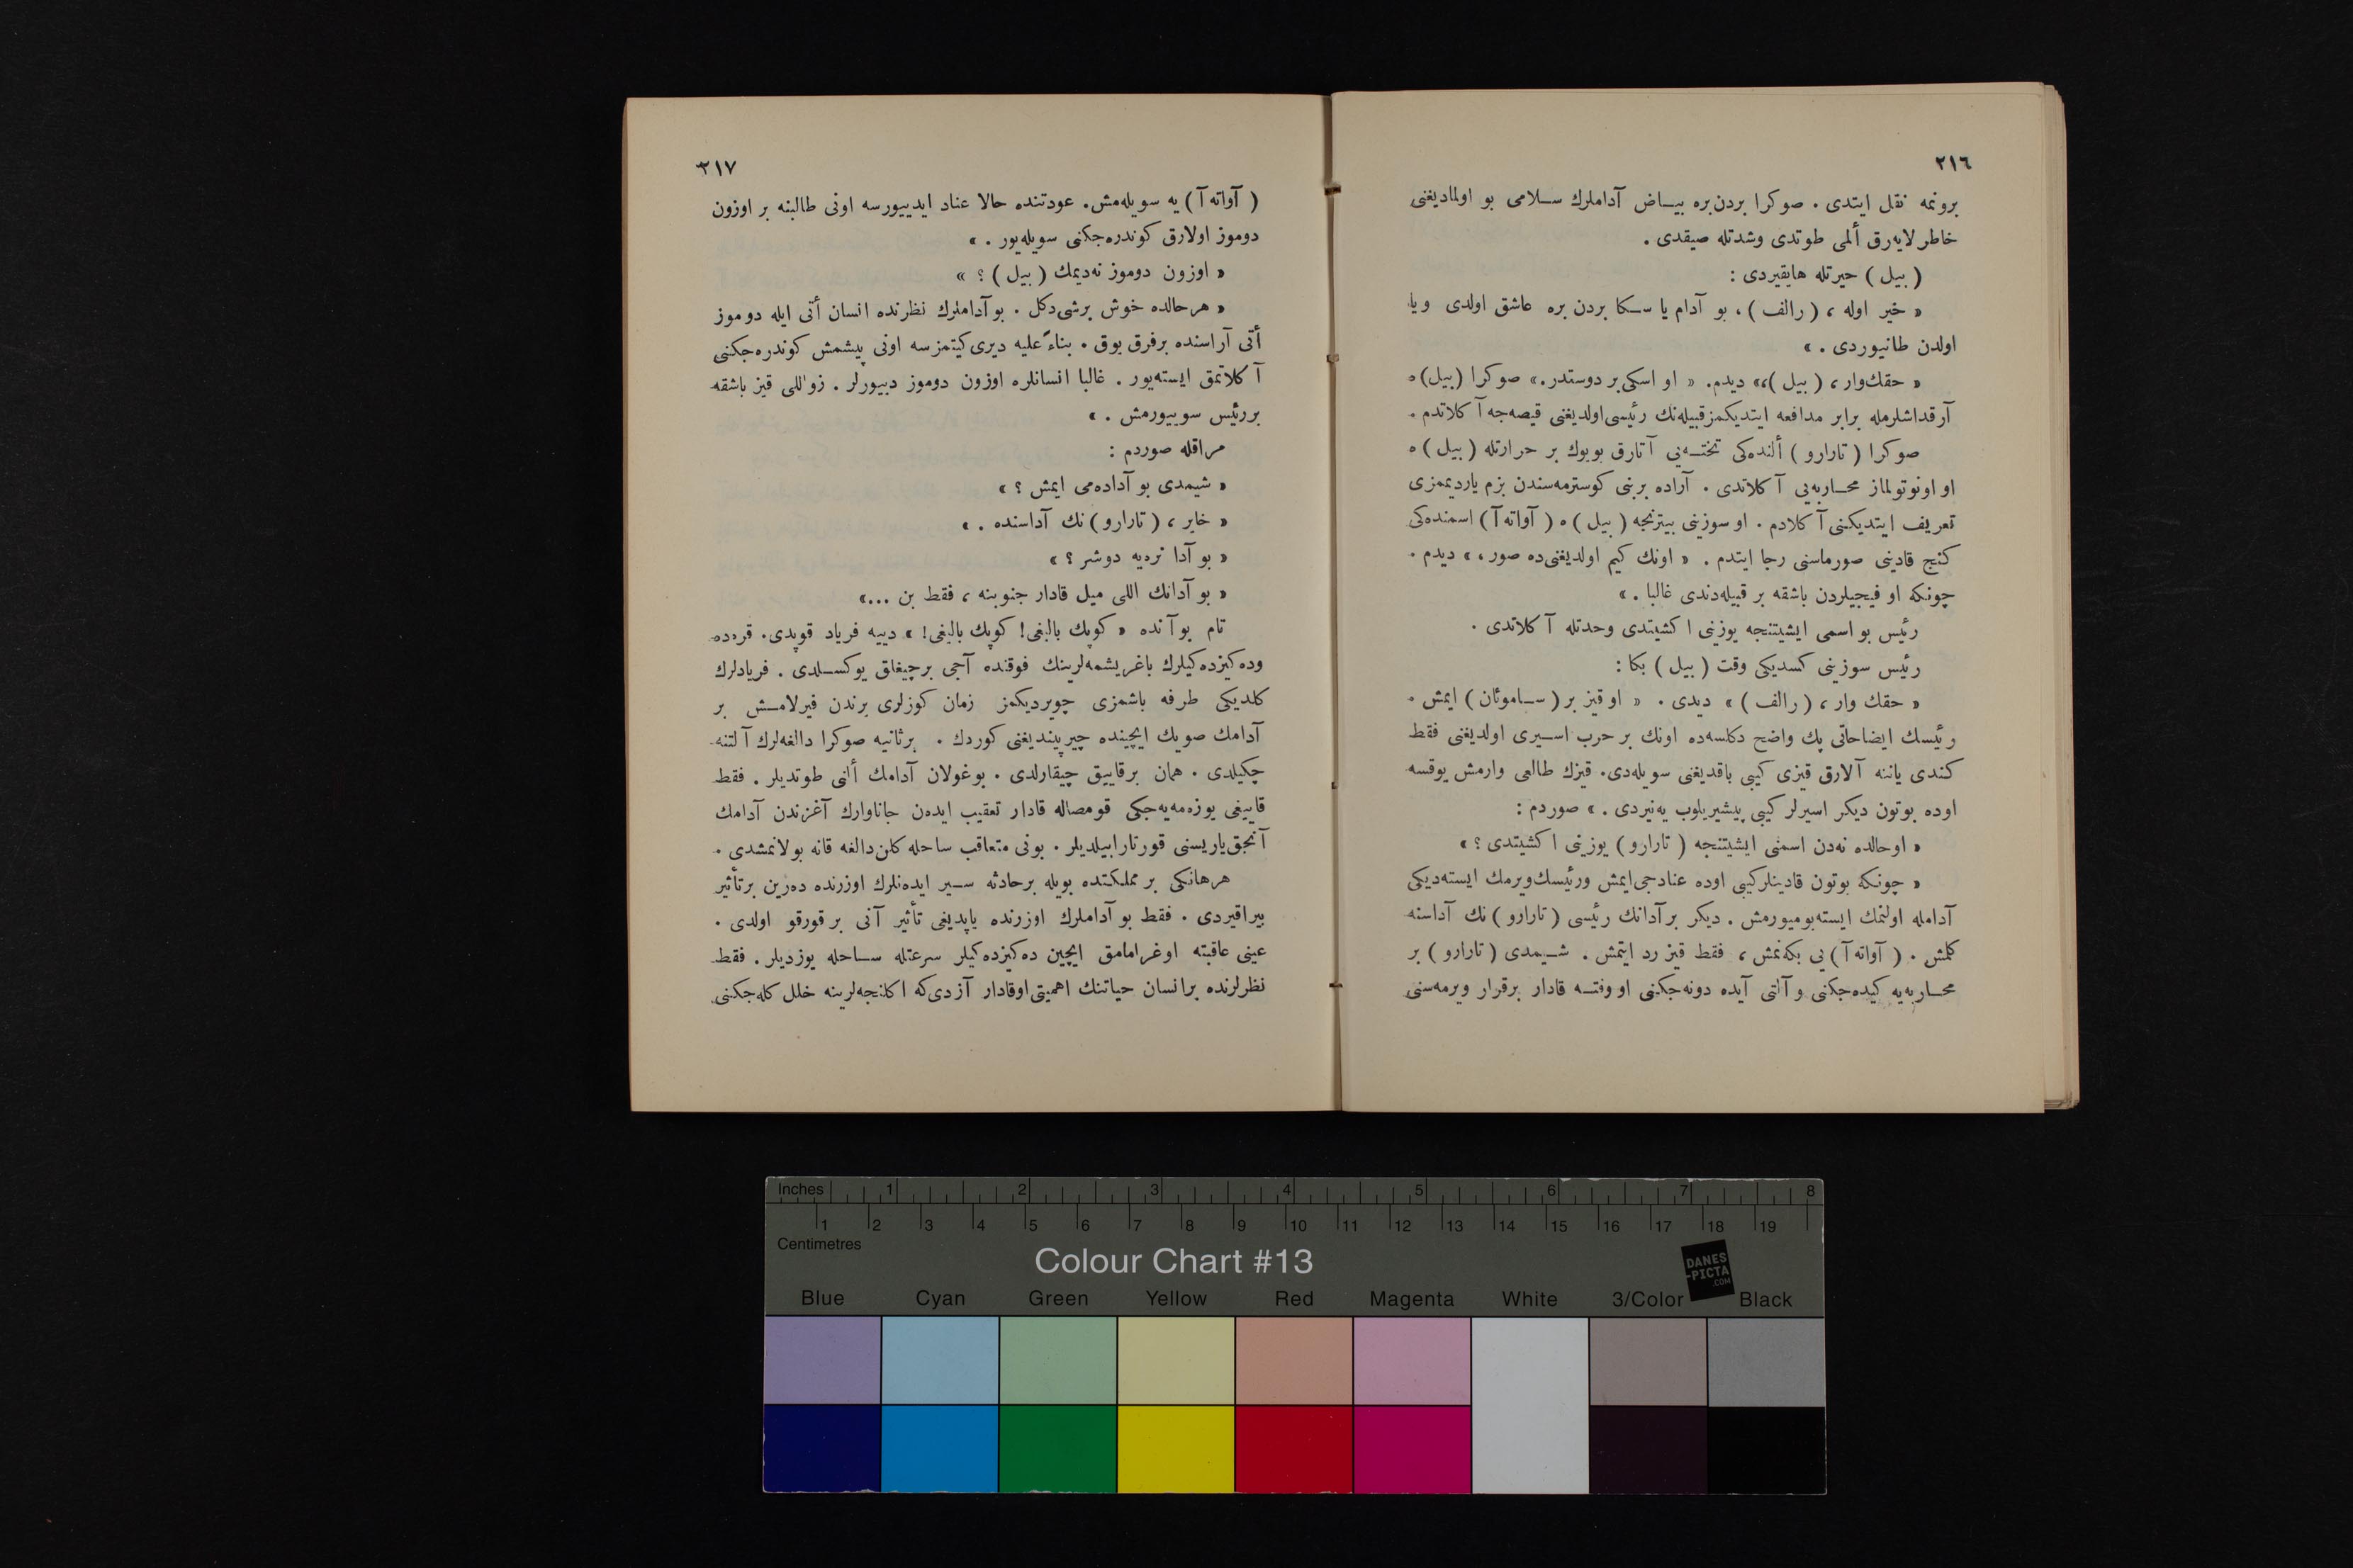 ٢١٦
برونمه نقل ایتدی . صوكرا بردن‌بره بیاض آداملرك سلامی بو اولمادیغنی
خاطرلایه‌رق ألمی طوتدی وشدتله صیقدی .
( بیل ) حیرتله هایقیردی :
« خیر اوله ، ( رالف ) ، بو آدام یا سكا بردن بره عاشق اولدی ویا
اولدن طانیوردی . »
« حقك‌وار ، ( بیل )،» دیدم. « او اسكی بر دوستدر.» صوكرا (بیل) ه
آرقداشلرمله برابر مدافعه ایتدیكمز قبیله‌نك رئیسی اولدیغنی قیصه‌جه آكلاتدم .
صوكرا ( تارارو ) ألنده‌كی تخته‌یی آتارق بویوك بر حرارتله ( بیل ) ه
او اونوتولماز محاربه‌یی آكلاتدی . آراده بربنی كوسترمه‌سندن بزم یاردیممزی
تعریف ایتدیكنی آكلادم . او سوزینی بیترنجه ( بیل ) ه ( آواته آ ) اسمنده‌كی
كنج قادینی صورماسنی رجا ایتدم . « اونك كیم اولدیغنی‌ده صور ، » دیدم .
چونكه او فیجیلردن باشقه بر قبیله‌دندی غالبا . »
رئیس بو اسمی ایشیتنجه یوزینی اكشیتدی وحدتله آكلاتدی .
رئیس سوزینی كسدیكی وقت ( بیل ) بكا :
« حقك وار ، ( رالف ) » دیدی . « او قیز بر ( ساموئان ) ایمش .
رئیسك ایضاحاتی پك واضح دكلسه‌ده اونك بر حرب اسیری اولدیغنی فقط
كندی یاننه آلارق قیزی كیبی باقدیغنی سویله‌دی. قیزك طالعی وارمش یوقسه
اوده بوتون دیكر اسیرلر كیبی پیشیریلوب یه‌نیردی . » صوردم :
« اوحالده نه‌دن اسمنی ایشیتنجه ( تارارو ) یوزینی اكشیتدی ؟ »
« چونكه بوتون قادینلركیبی اوده عنادجی‌ایمش ورئیسك‌ویرمك ایسته‌دیكی
آدامله اولنمك ایسته‌یومیورمش . دیكر بر آدانك رئیسی ( تارارو ) نك آداسنه
كلمش . ( آواته آ ) یی بكه‌نمش ، فقط قیز رد ایتمش . شیمدی ( تارارو ) بر
محاربه‌یه كیده‌جكنی و آلتی آیده دونه‌جكنی او وقته قادار برقرار ویرمه‌سنی
٢١٧
( آواته آ ) یه سویله‌مش. عودتنده حالا عناد ایدییورسه اونی طالبنه بر اوزون
دوموز اولارق كوندره‌جكنی سویله‌یور . »
« اوزون دوموز نه‌دیمك ( بیل ) ؟ »
« هرحالده خوش برشی‌دكل . بو آداملرك نظرنده انسان أتی ایله دوموز
أتی آراسنده برفرق یوق . بناءً علیه دیری كیتمزسه اونی پیشمش كوندره‌جكنی
آكلاتمق ایسته‌یور . غالبا انسانلره اوزون دوموز دییورلر . زواللی قیز باشقه
بررئیس سوییورمش . »
مراقله صوردم :
« شیمدی بو آداده‌می ایمش ؟ »
« خایر ، ( تارارو ) نك آداسنده . »
« بو آدا نره‌یه دوشر ؟ »
« بو آدانك اللی میل قادار جنوبنه ، فقط بن ...»
تام بو آنده « كوپك بالیغی! كوپك بالیغی! » دییه فریاد قوپدی. قره‌ده
وده‌كیزده‌كیلرك باغریشمه‌لرینك فوقنده آجی برچیغلق یوكسلدی . فریادلرك
كلدیكی طرفه باشمزی چویردیكمز زمان كوزلری برندن فیرلامش بر
آدامك صویك ایچینده چیرپیندیغنی كوردك . برثانیه صوكرا دالغه‌لرك آلتنه
چكیلدی . همان برقاییق چیقارلدی . بوغولان آدامك ألنی طوتدیلر . فقط
قاییغی یوزه‌مه‌یه‌جكی قومصاله قادار تعقیب ایده‌ن جاناوارك آغزندن آدامك
آنجق‌یاریسنی قورتارابیلدیلر . بونی متعاقب ساحله كلن‌دالغه قانه بولانمشدی .
هرهانكی بر مملكتده بویله برحادثه سیر ایده‌نلرك اوزرنده ده‌رین برتأثیر
بیراقیردی . فقط بو آداملرك اوزرنده یاپدیغی تأثیر آنی بر قورقو اولدی .
عینی عاقبته اوغرامامق ایچین ده‌كیزده‌كیلر سرعتله ساحله یوزدیلر . فقط
نظرلرنده برانسان حیاتنك اهمیتی اوقادار آزدی‌كه اكلنجه‌لرینه خلل كله‌جكنی
Inches 1 2 3 4 5 6 7 8
1 2 3 4 5 6 7 8 9 10 11 12 13 14 15 16 17 18 19
Centimetres
Colour Chart #13
DANES
-PICTA
.COM
Blue Cyan Green Yellow Red Magenta White 3/Color Black